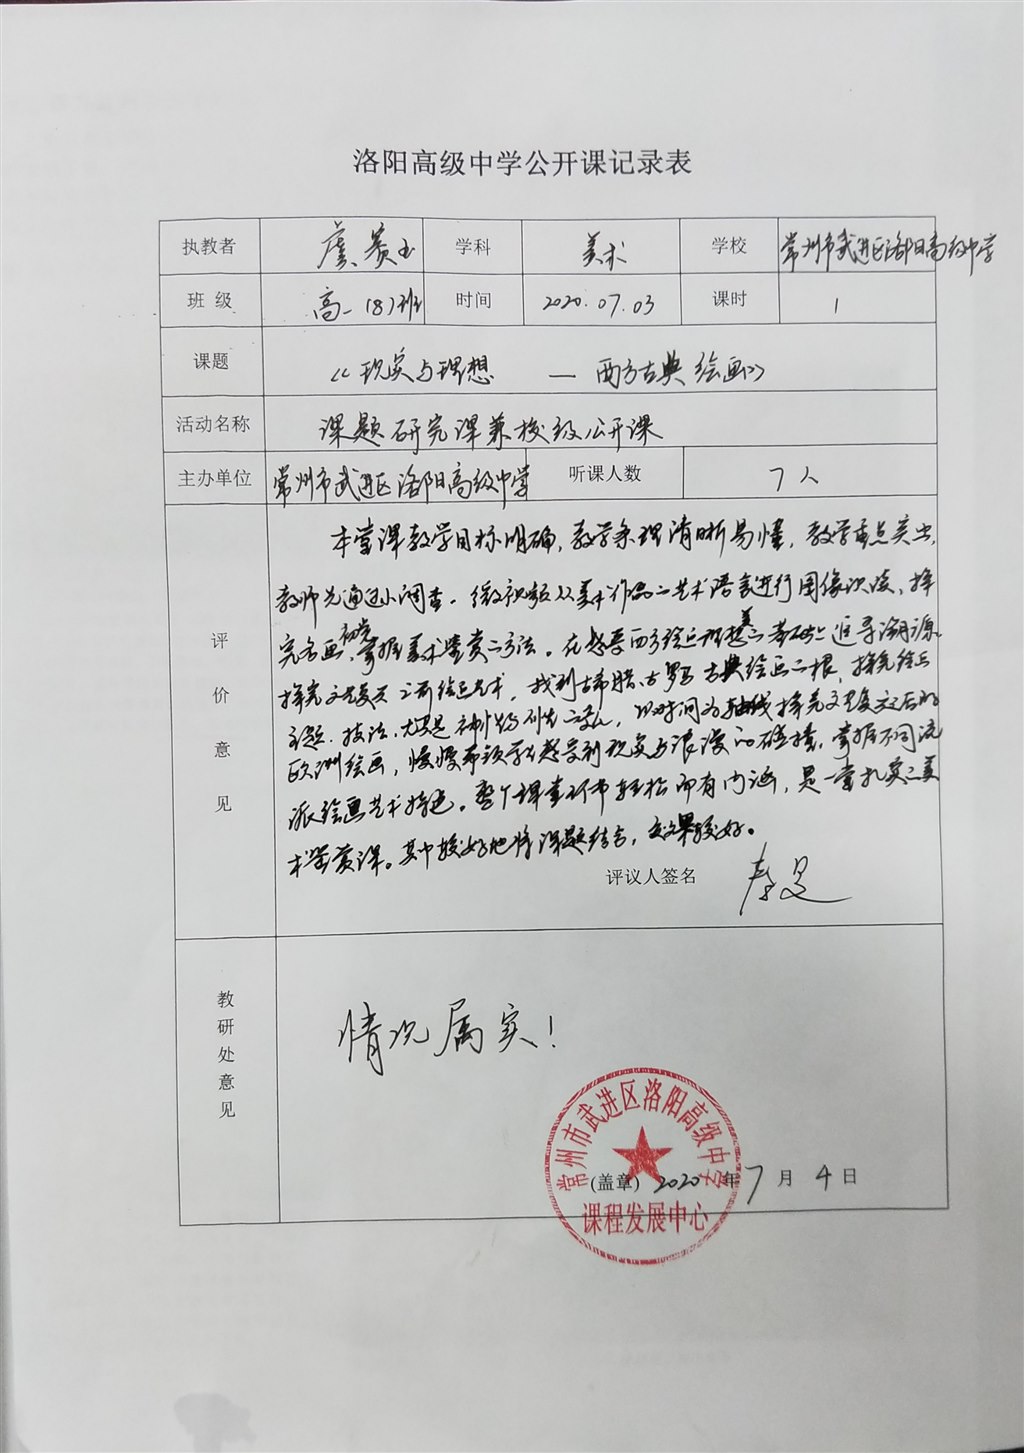 洛阳高级中学公开课记录表
执教者 虞 学科 美术 学校 常州市武进区洛阳高级中学
班级 高一(8)班 时间 2020.07.03 课时 1
课题 《现实与理想 — 西方古典绘画》
活动名称 课题研究课兼校级公开课
主办单位 常州市武进区洛阳高级中学 听课人数 7人
评价意见
本堂课教学目标明确,教学条理清晰易懂,教学重点突出,
教师先通过小调查、微视频从美术作品之艺术语言进行图像识读,探
究名画,初步掌握美术鉴赏之方法。在感受西方绘画理想美之基础上追寻溯源
探究文艺复兴之前绘画艺术,找到古希腊、古罗马古典绘画之根,探究绘画
主题、技法,尤其是 ,以时间为轴线探究文艺复兴之后的
欧洲绘画,慢慢带领学生感受到现实与浪漫的碰撞,掌握不同流
派绘画艺术特色。整个课堂环节轻松而有内涵,是一堂扎实之美
术鉴赏课。其中较好地将课题结合,效果较好。
评议人签名
教研处意见
情况属实!
常州市武进区洛阳高级中学
(盖章) 2020年7月4日
课程发展中心